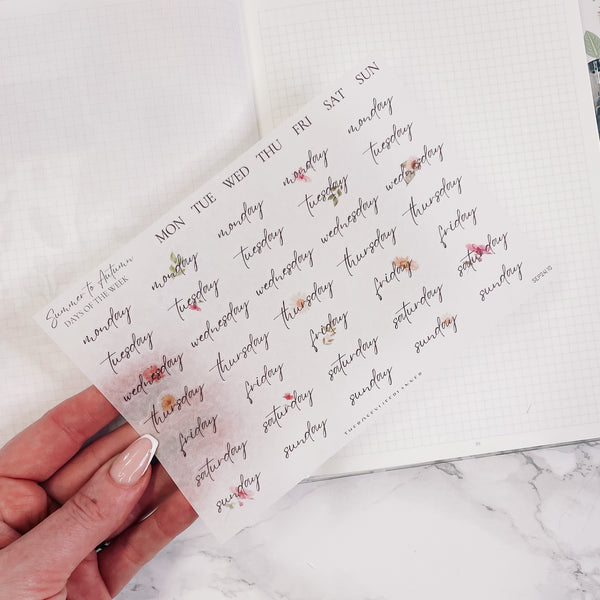 Summer to Autumn
DAYS OF THE WEEK
MON TUE WED THU FRI SAT SUN
monday monday monday monday monday
tuesday tuesday tuesday tuesday tuesday
wednesday wednesday wednesday wednesday wednesday
thursday thursday thursday thursday thursday
friday friday friday friday friday
saturday saturday saturday saturday saturday
sunday sunday sunday sunday sunday